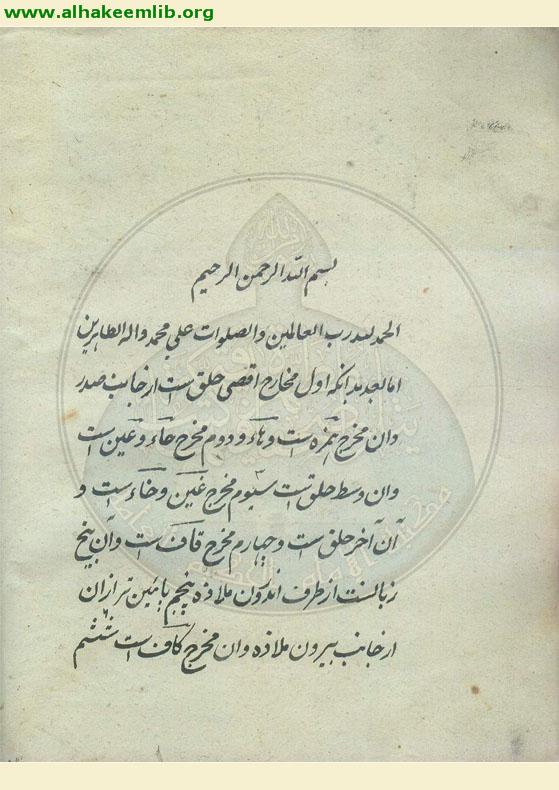 www.alhakeemlib.org
بسم الله الرحمن الرحیم
الحمد لله رب العالمین والصلوات علی محمد واله الطاهرین
اما بعد بدانکه اول مخارج اقصی حلق است از جانب صدر
و ان مخرج همزه است و هاء و دوم مخرج حاء و عین است
و ان وسط حلق است سیوم مخرج غین و خاء است و
آن آخر حلق است و چهارم مخرج قاف است و آن بیخ
زبانست از طرف اندرون ملاذه پنجم پائین تر از ان
از جانب بیرون ملاذه و ان مخرج کاف است ششم